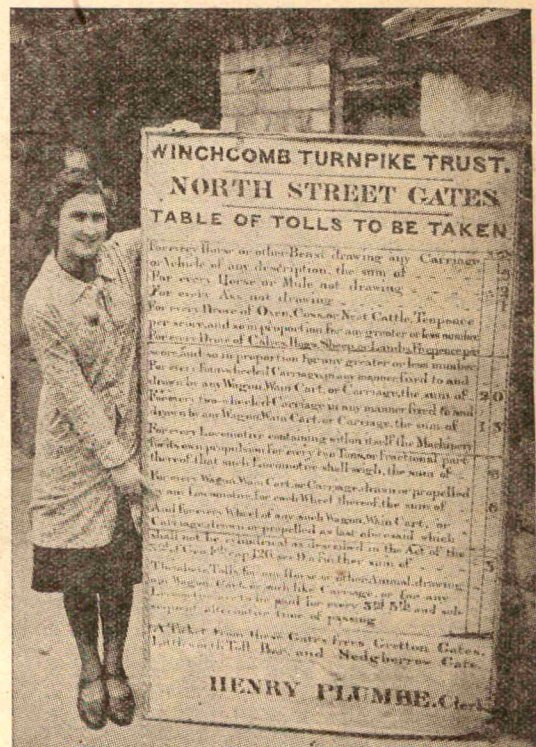 WINCHCOMB TURNPIKE TRUST.
NORTH STREET GATES
TABLE OF TOLLS TO BE TAKEN
For every Horse or other Beast drawing any Carriage
or Vehicle of any description, the sum of
For every Horse or Mule not drawing
For every Ass not drawing
For every Drove of Oxen, Cows, or Neat Cattle, Tenpence
per score, and so in proportion for any greater or less number
For every Drove of Calves, Hogs, Sheep, or Lambs, Fivepence per
score, and so in proportion for any greater or less number
For every Four-wheeled Carriage, in any manner fixed to and
drawn by any Wagon, Wain Cart, or Carriage, the sum of 2 0
For every two-wheeled Carriage in any manner fixed to and
drawn by any Wagon, Wain Cart, or Carriage, the sum of 1 3
For every Locomotive containing within itself the Machinery
for its own propulsion for every two Tons, or fractional part
thereof that such Locomotive shall weigh, the sum of
For every Wagon, Wain Cart, or Carriage, drawn or propelled
by any Locomotive, for each Wheel thereof the sum of 6
And for every Wheel of any such Wagon, Wain Cart, or
Carriage, drawn or propelled as last aforesaid which
shall not be cylindrical as described in the Act of the
cap. 126 further sum of 3
Tolls for any Horse or other Animal, drawing
any Wagon, Cart, or such like Carriage, or for any
to be paid for every 3rd 5th and sub
sequent alternative time of passing
A Ticket from these Gates frees Gretton Gates,
Toll Bar, and Sedgberrow Gate.
HENRY PLUMBE. Clerk